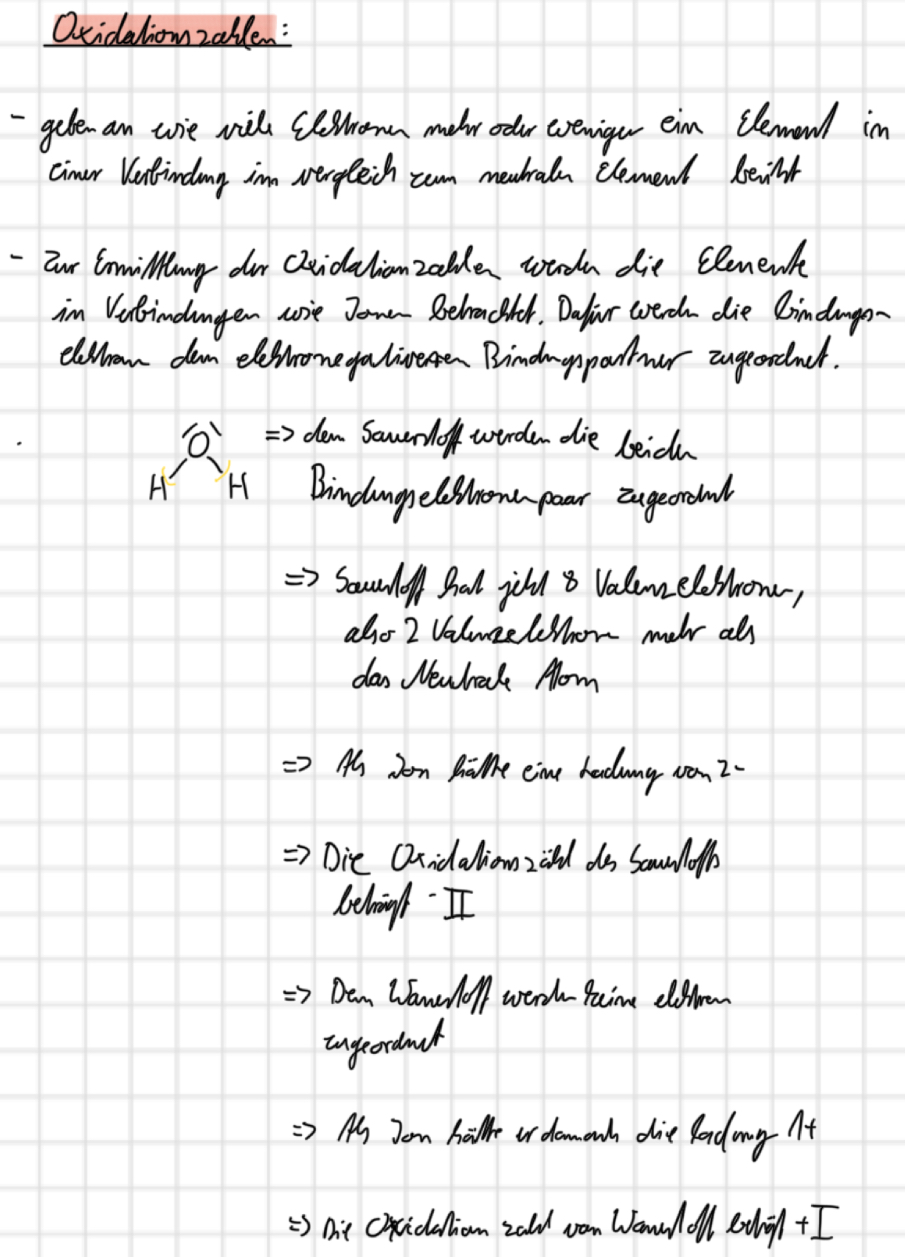 Oxidationszahlen:
- geben an wie viele Elektronen mehr oder weniger ein Element in
einer Verbindung im vergleich zum neutralen Element besitzt
- Zur Ermittlung der Oxidationzahlen werden die Elemente
in Verbindungen wie Ionen betrachtet. Dafür werden die Bindungs-
elektronen dem elektronegativeren Bindungspartner zugeordnet.
O => dem Sauerstoff werden die beiden
H H Bindungselektronenpaar zugeordnet
=> Sauerstoff hat jetzt 8 Valenzelektronen,
also 2 Valenzelektronen mehr als
das Neutrale Atom
=> Als Ion hätte eine Ladung von 2-
=> Die Oxidationszahl des Sauerstoffs
beträgt -II
=> Dem Wasserstoff werden keine elektronen
zugeordnet
=> Als Ion hätte er demnach die ladung 1+
=> Die Oxidation zahl von Wasserstoff beträgt +I